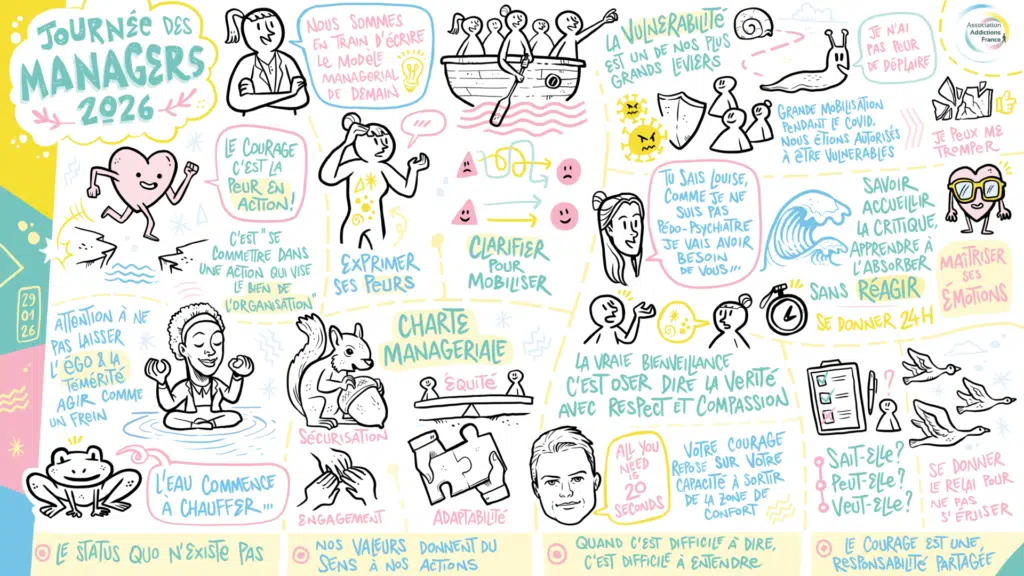 JOURNÉE DES
MANAGERS
2026
NOUS SOMMES
EN TRAIN D'ÉCRIRE
LE MODÈLE
MANAGERIAL
DE DEMAIN
LA VULNERABILITÉ
EST UN DE NOS PLUS
GRANDS LEVIERS
JE N'AI
PAS PEUR
DE DÉPLAIRE
Association
Addictions
France
GRANDE MOBILISATION
PENDANT LE COVID.
NOUS ÉTIONS AUTORISÉS
À ÊTRE VULNERABLES
JE PEUX ME
TROMPER
LE COURAGE
C'EST LA
PEUR EN
ACTION!
C'EST "SE
COMMETTRE DANS
UNE ACTION QUI VISE
LE BIEN DE
L'ORGANISATION"
EXPRIMER
SES PEURS
CLARIFIER
POUR
MOBILISER
TU SAIS LOUISE,
COMME JE NE
SUIS PAS
PÉDO-PSYCHIATRE
JE VAIS AVOIR
BESOIN
DE VOUS...
SAVOIR
ACCUEILLIR
LA CRITIQUE,
APPRENDRE À
L'ABSORBER
SANS RÉAGIR
SE DONNER 24H
MAÎTRISER
SES
ÉMOTIONS
29
01
26
ATTENTION À NE
PAS LAISSER
L'ÉGO & LA
TÉMÉRITÉ
AGIR COMME
UN FREIN
L'EAU COMMENCE
À CHAUFFER...
CHARTE
MANAGERIALE
SÉCURISATION
ÉQUITÉ
ENGAGEMENT
ADAPTABILITÉ
LA VRAIE BIENVEILLANCE
C'EST OSER DIRE LA VERITÉ
AVEC RESPECT ET COMPASSION
ALL YOU
NEED
IS
20
SECONDS
VOTRE COURAGE
REPOSE SUR VOTRE
CAPACITÉ À SORTIR
DE LA ZONE DE
CONFORT
?
SAIT-ELLE?
PEUT-ELLE?
VEUT-ELLE?
SE DONNER
LE RELAI POUR
NE PAS
S'ÉPUISER
LE STATUS QUO N'EXISTE PAS
NOS VALEURS DONNENT DU
SENS À NOS ACTIONS
QUAND C'EST DIFFICILE À DIRE,
C'EST DIFFICILE À ENTENDRE
LE COURAGE EST UNE,
RESPONSABILITÉ PARTAGÉE